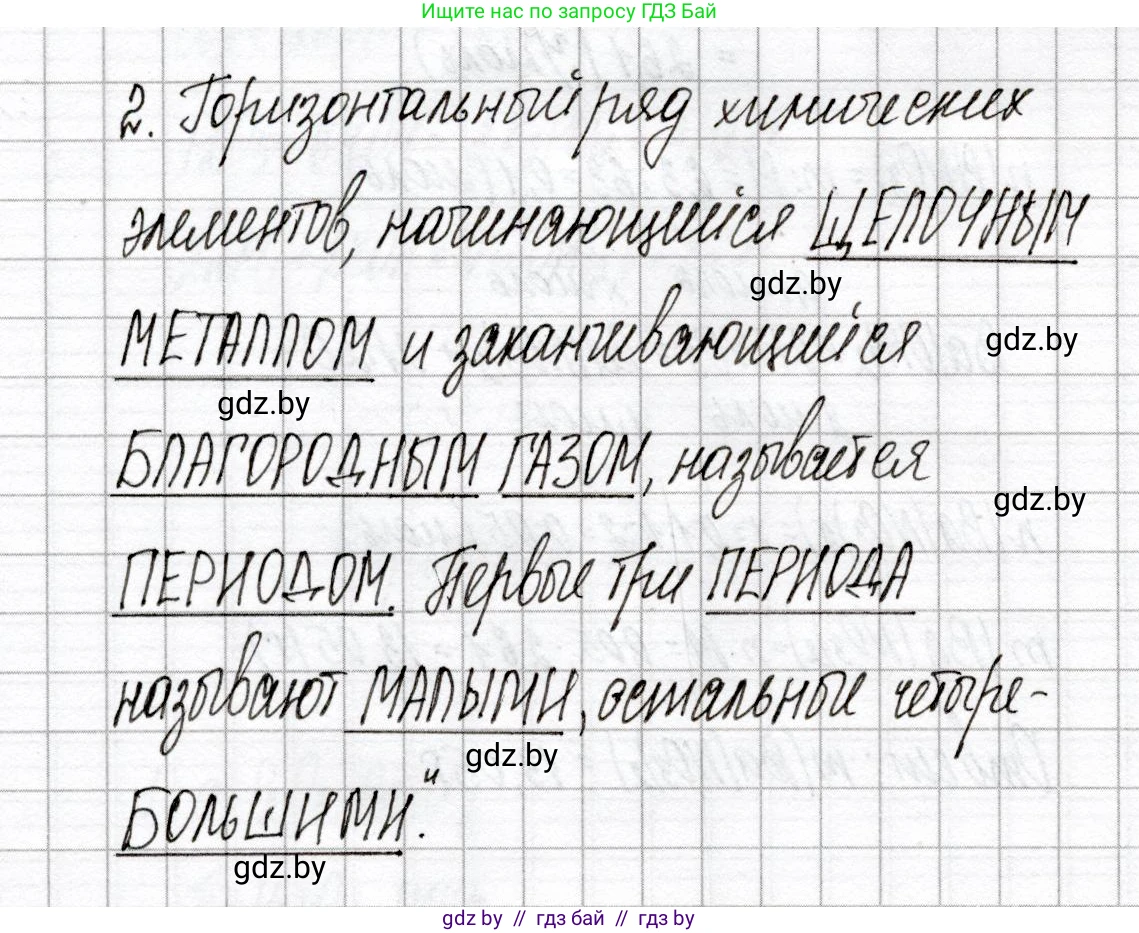 Ищите нас по запросу ГДЗ Бай
2. Горизонтальный ряд химических
элементов, начинающийся ЩЕЛОЧНЫМ
gdz.by
МЕТАЛЛОМ и заканчивающийся
gdz.by
gdz.by
БЛАГОРОДНЫМ ГАЗОМ, называется
gdz.by
ПЕРИОДОМ. Первые три ПЕРИОДА
называют МАЛЫМИ, остальные четыре-
gdz.by
БОЛЬШИМИ".
gdz.by
gdz by // гдз бай // гдз by